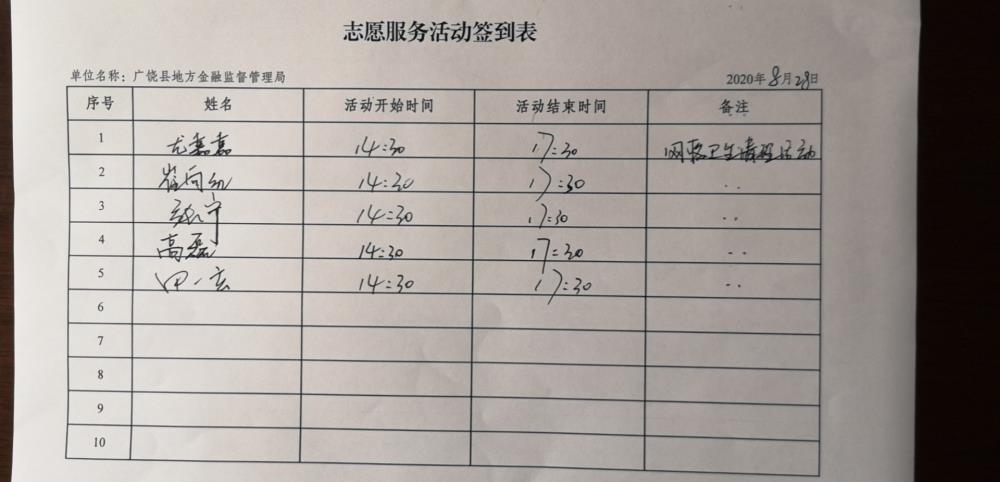 志愿服务活动签到表
单位名称：广饶县地方金融监督管理局 2020年8月28日
序号 姓名 活动开始时间 活动结束时间 备注
1 尤嘉嘉 14:30 17:30 网格卫生清理活动
2 14:30 17:30 ..
3 14:30 17:30 ..
4 高磊 14:30 17:30 ..
5 14:30 17:30 ..
6
7
8
9
10